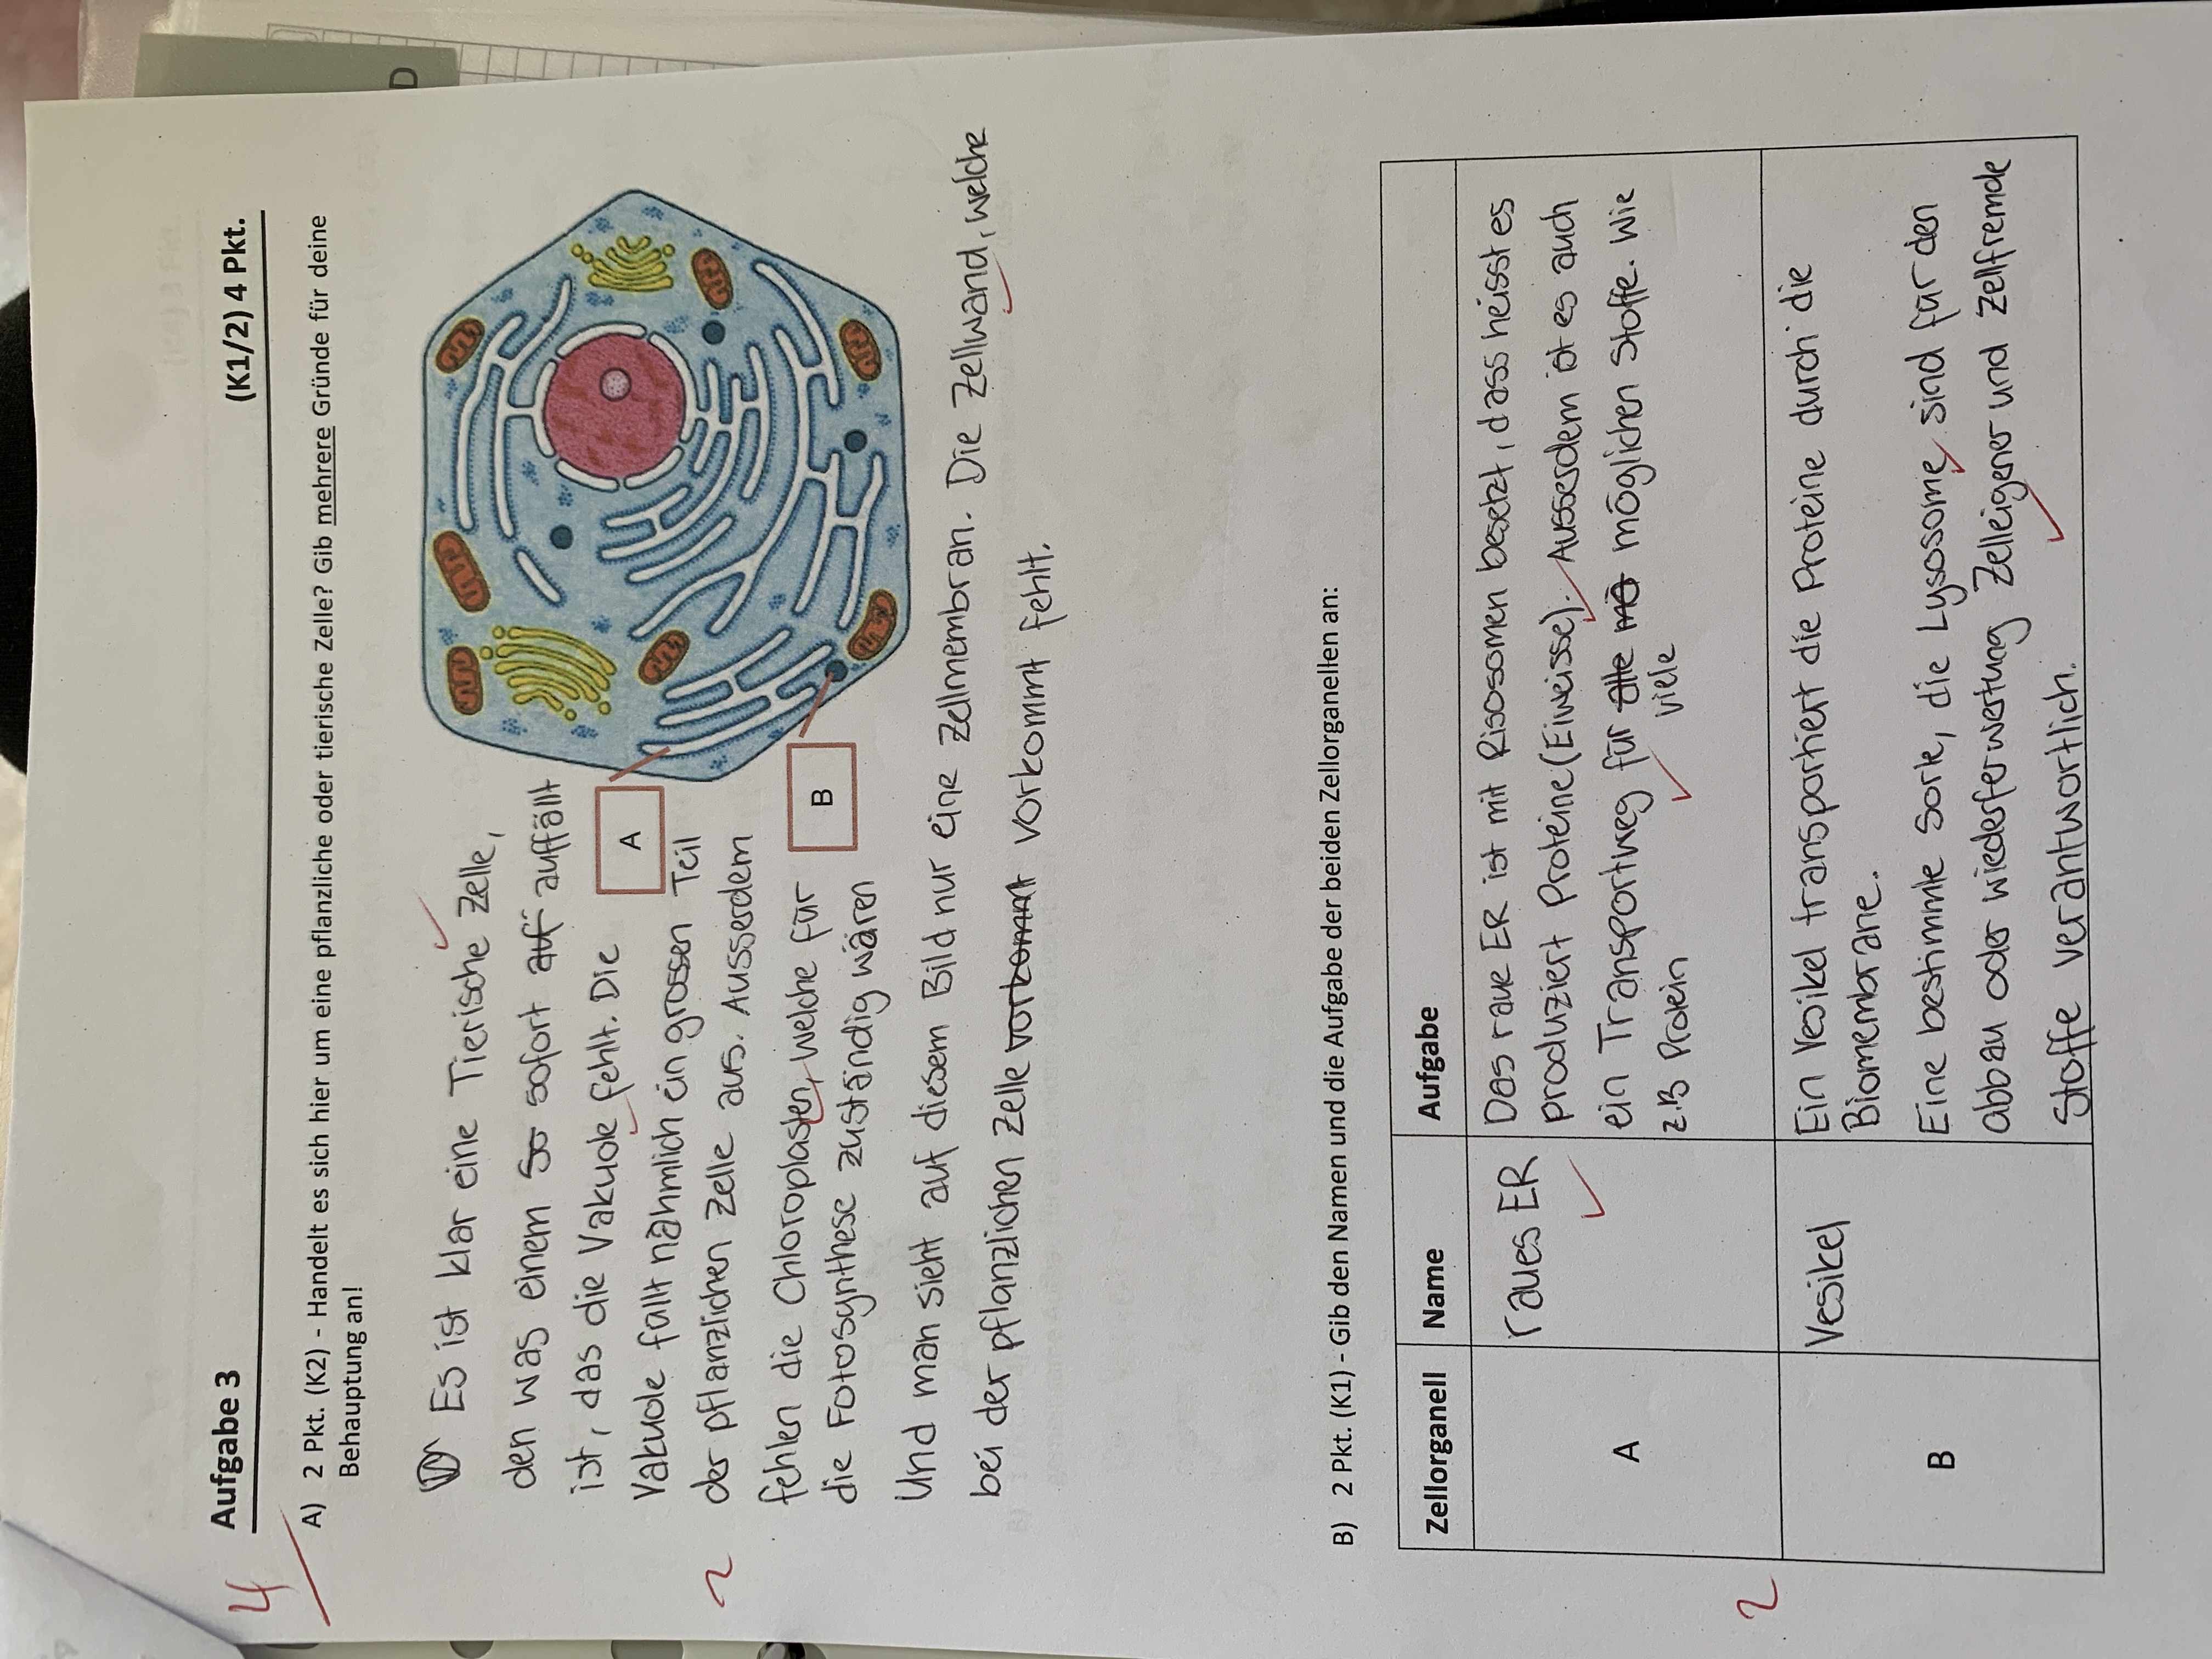 Aufgabe 3
(K1/2) 4 Pkt.
4
A) 2 Pkt. (K2) - Handelt es sich hier um eine pflanzliche oder tierische Zelle? Gib mehrere Gründe für deine
Behauptung an!
Es ist klar eine Tierische Zelle,
den was einem so sofort auf auffällt
ist, das die Vakuole fehlt. Die
Vakuole fällt nähmlich ein grossen Teil
2
der pflanzlichen Zelle aus. Ausserdem
fehlen die Chloroplasten, welche für
die Fotosynthese zuständig wären
A
B
Und man sieht auf diesem Bild nur eine Zellmembran. Die Zellwand, welche
bei der pflanzlichen Zelle vorkommt vorkommt fehlt.
B) 2 Pkt. (K1) - Gib den Namen und die Aufgabe der beiden Zellorganellen an:
Zellorganell Name Aufgabe
A
raues ER
Das raue ER ist mit Risosomen besetzt, dass heisst es
produziert Proteine (Eiweisse). Ausserdem ist es auch
ein Transportweg für alle mö möglichen Stoffe. Wie
z.B Protein viele
2
B
Vesikel
Ein Vesikel transportiert die Proteine durch die
Biomembrane.
Eine bestimmte Sorte, die Lysosome sind für den
abbau oder wiederferwertung Zelleigener und Zellfremde
Stoffe verantwortlich.
D